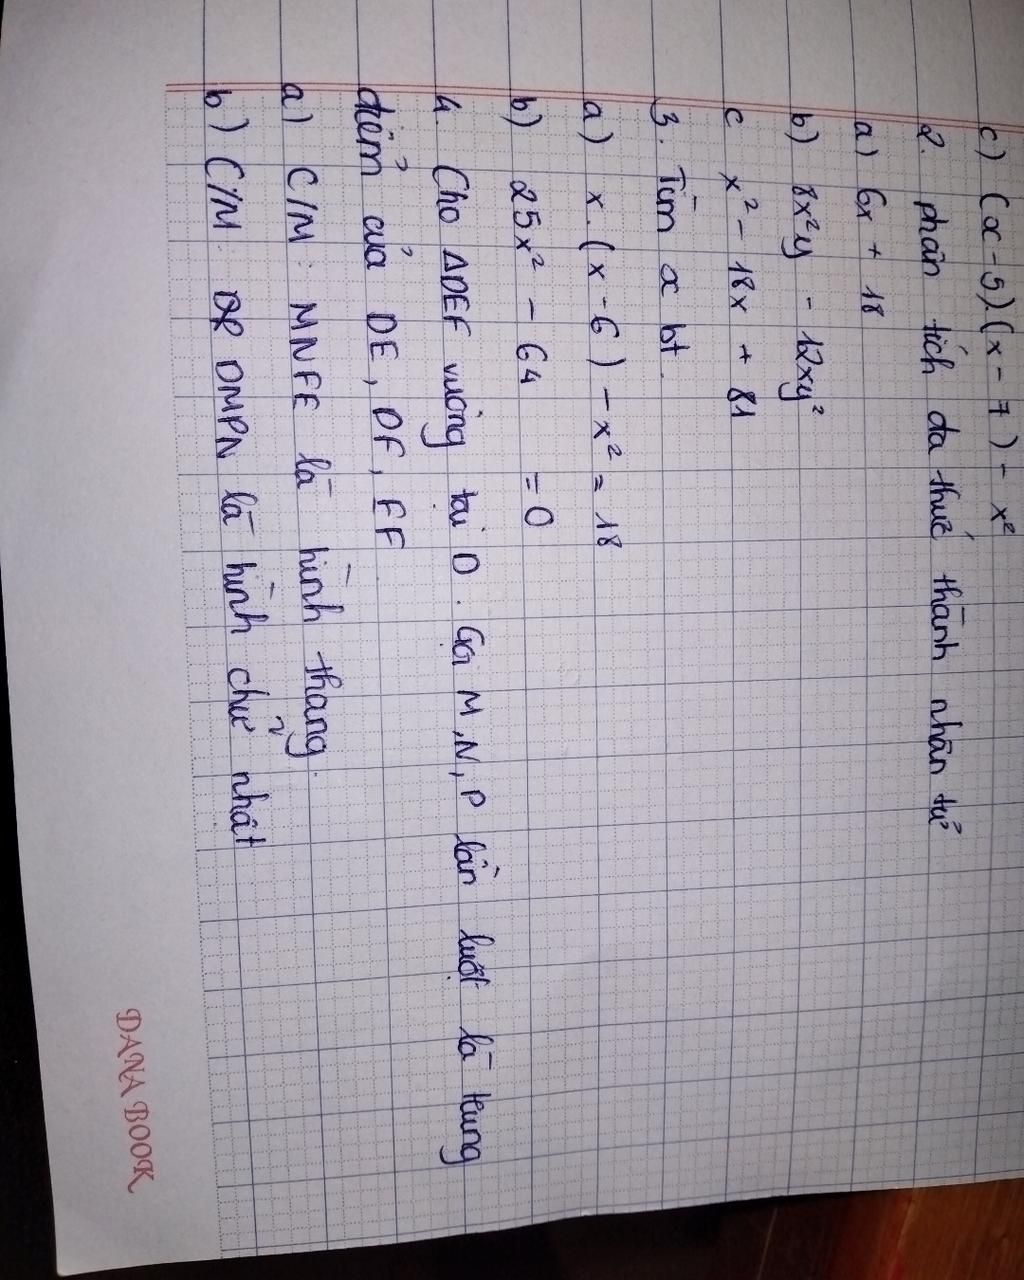 c) (x - 5).(x - 7) - x²
2. phân tích đa thức thành nhân tử
a) 6x + 18
b) 8x²y - 12xy²
c x² - 18x + 81
3. Tìm x bt.
a) x.(x - 6) - x² = 18
b) 25x² - 64 = 0
4. Cho ΔDEF vuông tại D. Gọi M, N, P lần lượt là trung
điểm của DE, DF, EF
a) C/M: MNFE là hình thang.
b) C/M: DMPN là hình chữ nhật
DANA BOOK